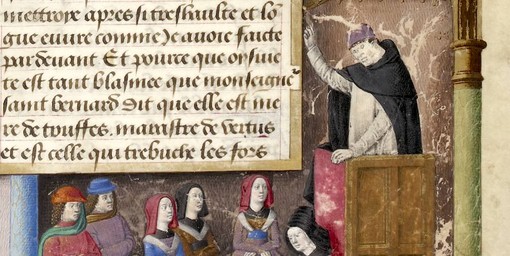 mettroye apres si treshaulte et lo
gue euure comme Je auoie faicte
par deuant Et pource que oysiue
te est tant blasmee que monseignr̃
saint bernard dit que elle est me
re de touffes. marastre de vertus
et est celle qui trebuche les fors